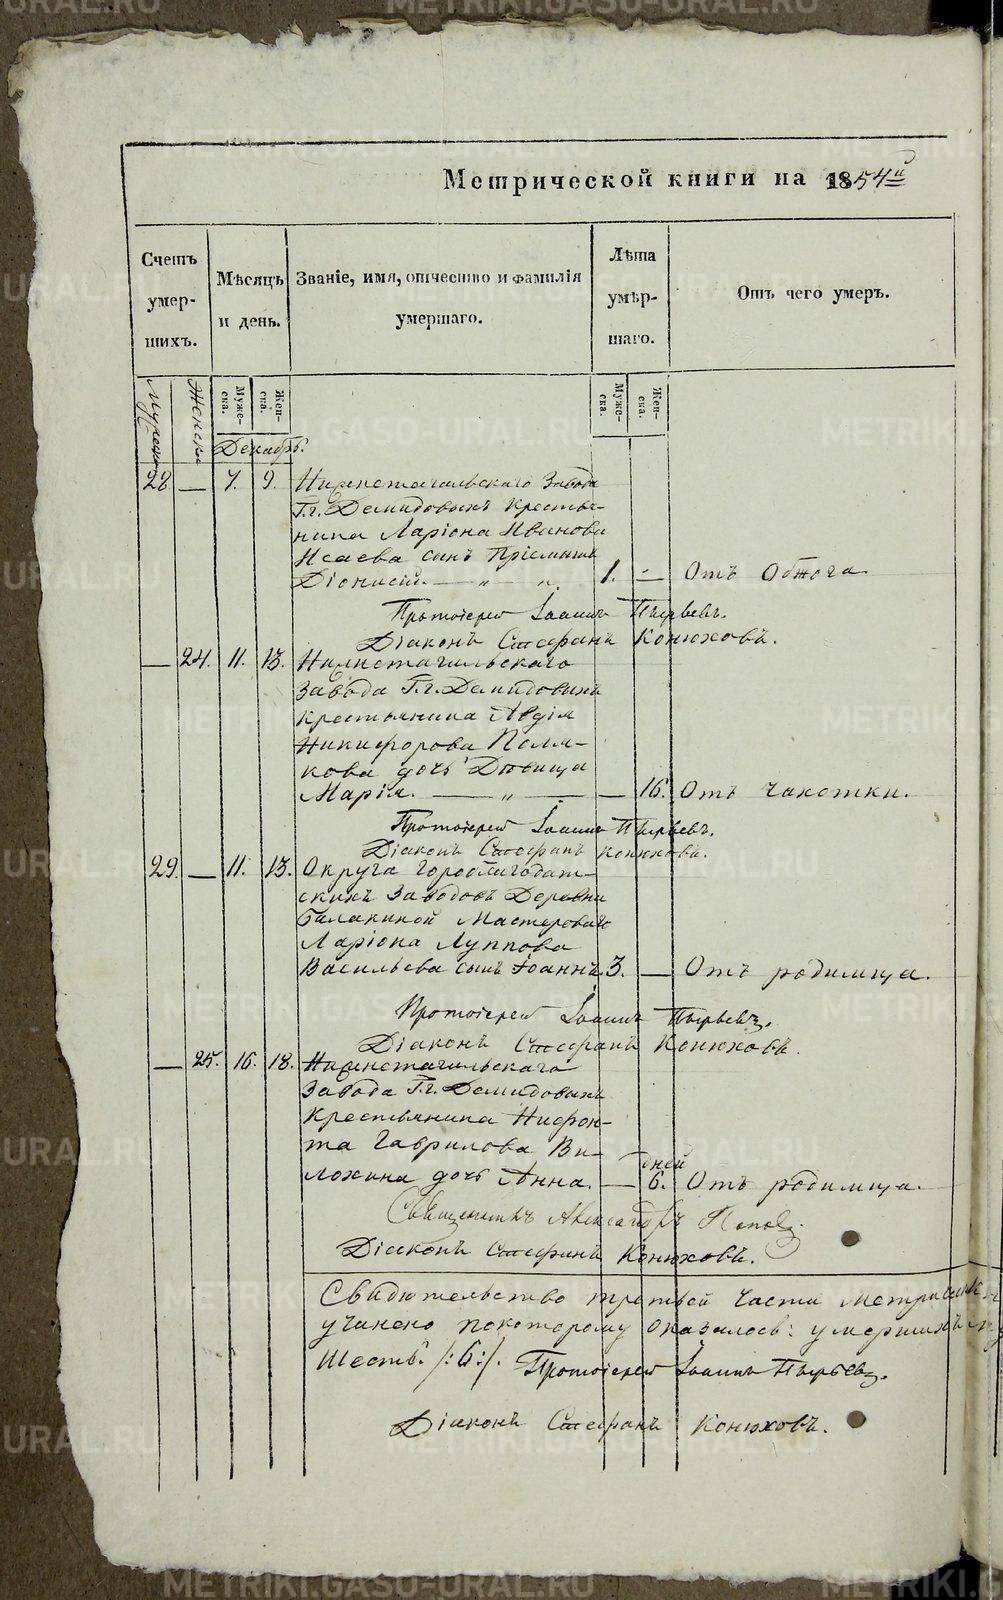 Метрической книги на 1854й
Счетъ умершихъ.
Мѣсяцъ и день.
Званіе, имя, отчество и фамилія умершаго.
Лѣта умѣршаго.
Отъ чего умеръ.
Мужска
Женска
Мужеска.
Женска.
Мужеска.
Женска.
Декабрь.
28 — 7. 9. Нижнетагильскаго Завода
Г.г. Демидовыхъ крестья-
нина Ларіона Иванова
Исаева сынъ Пріемышъ
Діонисій. — „ — „ 1. — Отъ
Протоіерей Іоаннъ Пырьевъ.
Діаконъ Стефанъ Конюховъ.
— 24. 11. 13. Нижнетагильскаго
Завода Г.г. Демидовыхъ
крестьянина Авдія
Никифорова Поля-
кова дочь Дѣвица
Марія. — „ — — 16. Отъ чахотки.
Протоіерей Іоаннъ Пырьевъ.
Діаконъ Стефанъ Конюховъ.
29. — 11. 13. Округа Гороблагодат-
скихъ Заводовъ Деревни
Балакиной Мастероваго
Ларіона Луппова
Васильева сынъ Іоаннъ 3. — Отъ родимца.
Протоіерей Іоаннъ Пырьевъ.
Діаконъ Стефанъ Конюховъ.
— 25. 16. 18. Нижнетагильскаго
Завода Г.г. Демидовыхъ
Крестьянина Нифон-
та Гаврилова Ви-
ложина дочь Анна. — дней 6. Отъ родимца.
Священникъ Александръ Поповъ.
Діаконъ Стефанъ Конюховъ.
Свидѣтельство третьей части метрики
учинено по которому оказалось: умершихъ
Шесть. /:6:/. Протоіерей Іоаннъ Пырьевъ.
Діаконъ Стефанъ Конюховъ.
METRIKI.GASO-URAL.RU